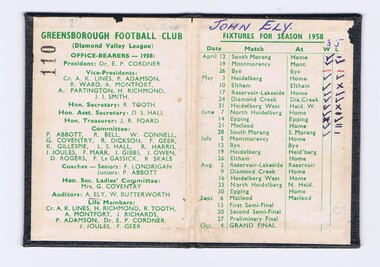 110
GREENSBOROUGH FOOTBALL CLUB
(Diamond Valley League)
OFFICE-BEARERS — 1958:
President: Dr. E. P. CORDNER
Vice-Presidents:
Cr. A. K. LINES, P. ADAMSON,
R. WARD, A. MONTFORT,
A. PARTINGTON, H. RICHMOND,
J. L. SMITH
Hon. Secretary: R. TOOTH
Hon. Asst. Secretary: D. S. HALL
Hon. Treasurer: J. R. FOARD
Committee:
P. ABBOTT, R. BELL, W. CONNELL,
G. COVENTRY, R. DICKSON, F. GEER,
K. GILLESPIE, L. S. HALL, R. HARRIS,
J. JOULES, F. MARR, J. GIBBS, J. OWEN,
D. ROGERS, F. Le GASSICK, R. SKALS
Coaches — Seniors: F. LONDRIGAN
Juniors: P. ABBOTT
Hon. Sec. Ladies' Committee:
Mrs. G. COVENTRY
Auditors: A. ELY, W. BUTTERWORTH
Life Members:
Cr. A. K. LINES, H. RICHMOND, R. TOOTH,
A. MONTFORT, J. RICHARDS,
P. ADAMSON, Dr. E. P. CORDNER,
J. JOULES, F. GEER
JOHN ELY.
FIXTURES FOR SEASON 1958
Date Match At W L
April 12 South Morang Home
19 Montmorency Mont.
26 Bye
May 3 Heidelberg Home
10 Eltham Home
17 Reservoir-Lakeside Home
24 Diamond Creek Dia. Creek
31 Heidelberg West H. West
June 7 North Heidelberg Home
14 Epping Epping
21 Macleod Home
28 South Morang S. Morang
July 5 Montmorency Home
12 Bye
19 Heidelberg Heid'berg
26 Eltham Eltham
Aug 2 Reservoir-Lakeside Reservoir
9 Diamond Creek Home
16 Heidelberg West Home
23 North Heidelberg N. Heid.
30 Epping Home
Sept. 6 Macleod Macleod
13 First Semi-Final
20 Second Semi-Final
27 Preliminary Final
Oct. 4 GRAND FINAL